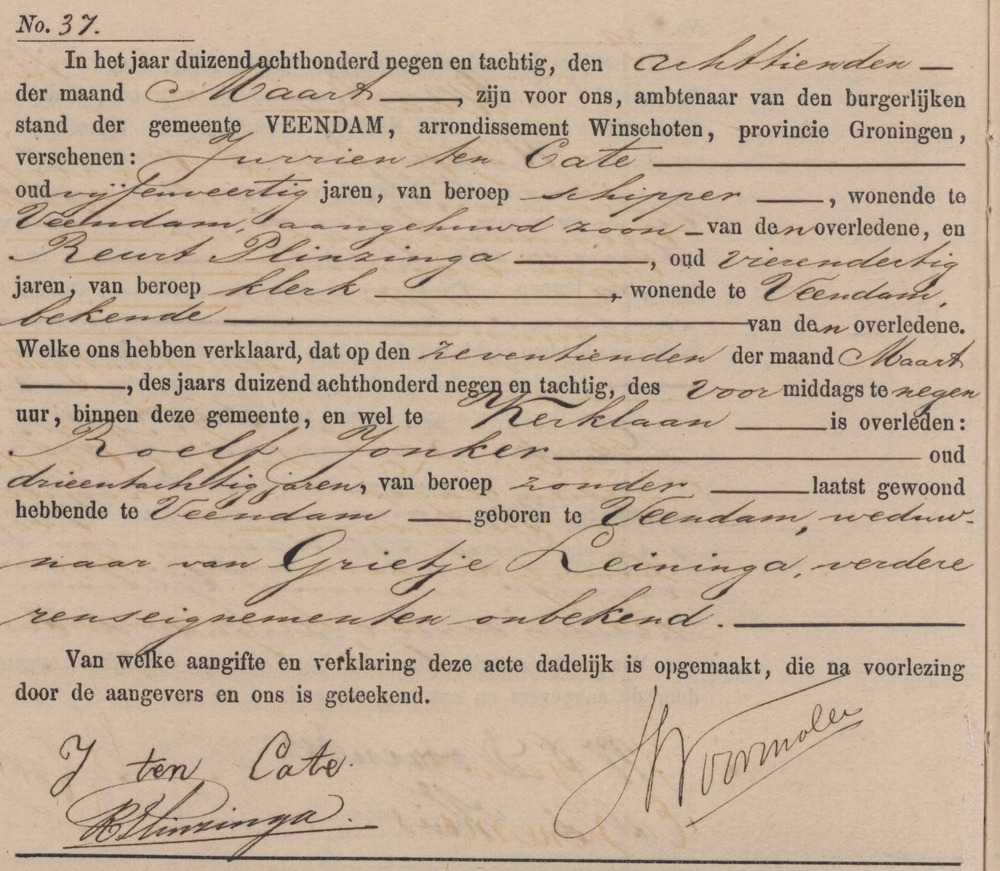 No. 37.
In het jaar duizend achthonderd negen en tachtig, den achttienden
der maand Maart, zijn voor ons, ambtenaar van den burgerlijken
stand der gemeente VEENDAM, arrondissement Winschoten, provincie Groningen,
verschenen: Jurrien ten Cate
oud vijfenveertig jaren, van beroep schipper, wonende te
Veendam, aangehuwd zoon van den overledene, en
Reurt Plinzinga, oud vierendertig
jaren, van beroep klerk, wonende te Veendam,
bekende van den overledene.
Welke ons hebben verklaard, dat op den zeventienden der maand Maart
, des jaars duizend achthonderd negen en tachtig, des voormiddags te negen
uur, binnen deze gemeente, en wel te Kerklaan is overleden:
Roelf Jonker oud
drieentachtig jaren, van beroep zonder laatst gewoond
hebbende te Veendam geboren te Veendam, weduw-
naar van Grietje Leininga, verdere
renseignementen onbekend.
Van welke aangifte en verklaring deze acte dadelijk is opgemaakt, die na voorlezing
door de aangevers en ons is geteekend.
J ten Cate
R Plinzinga.